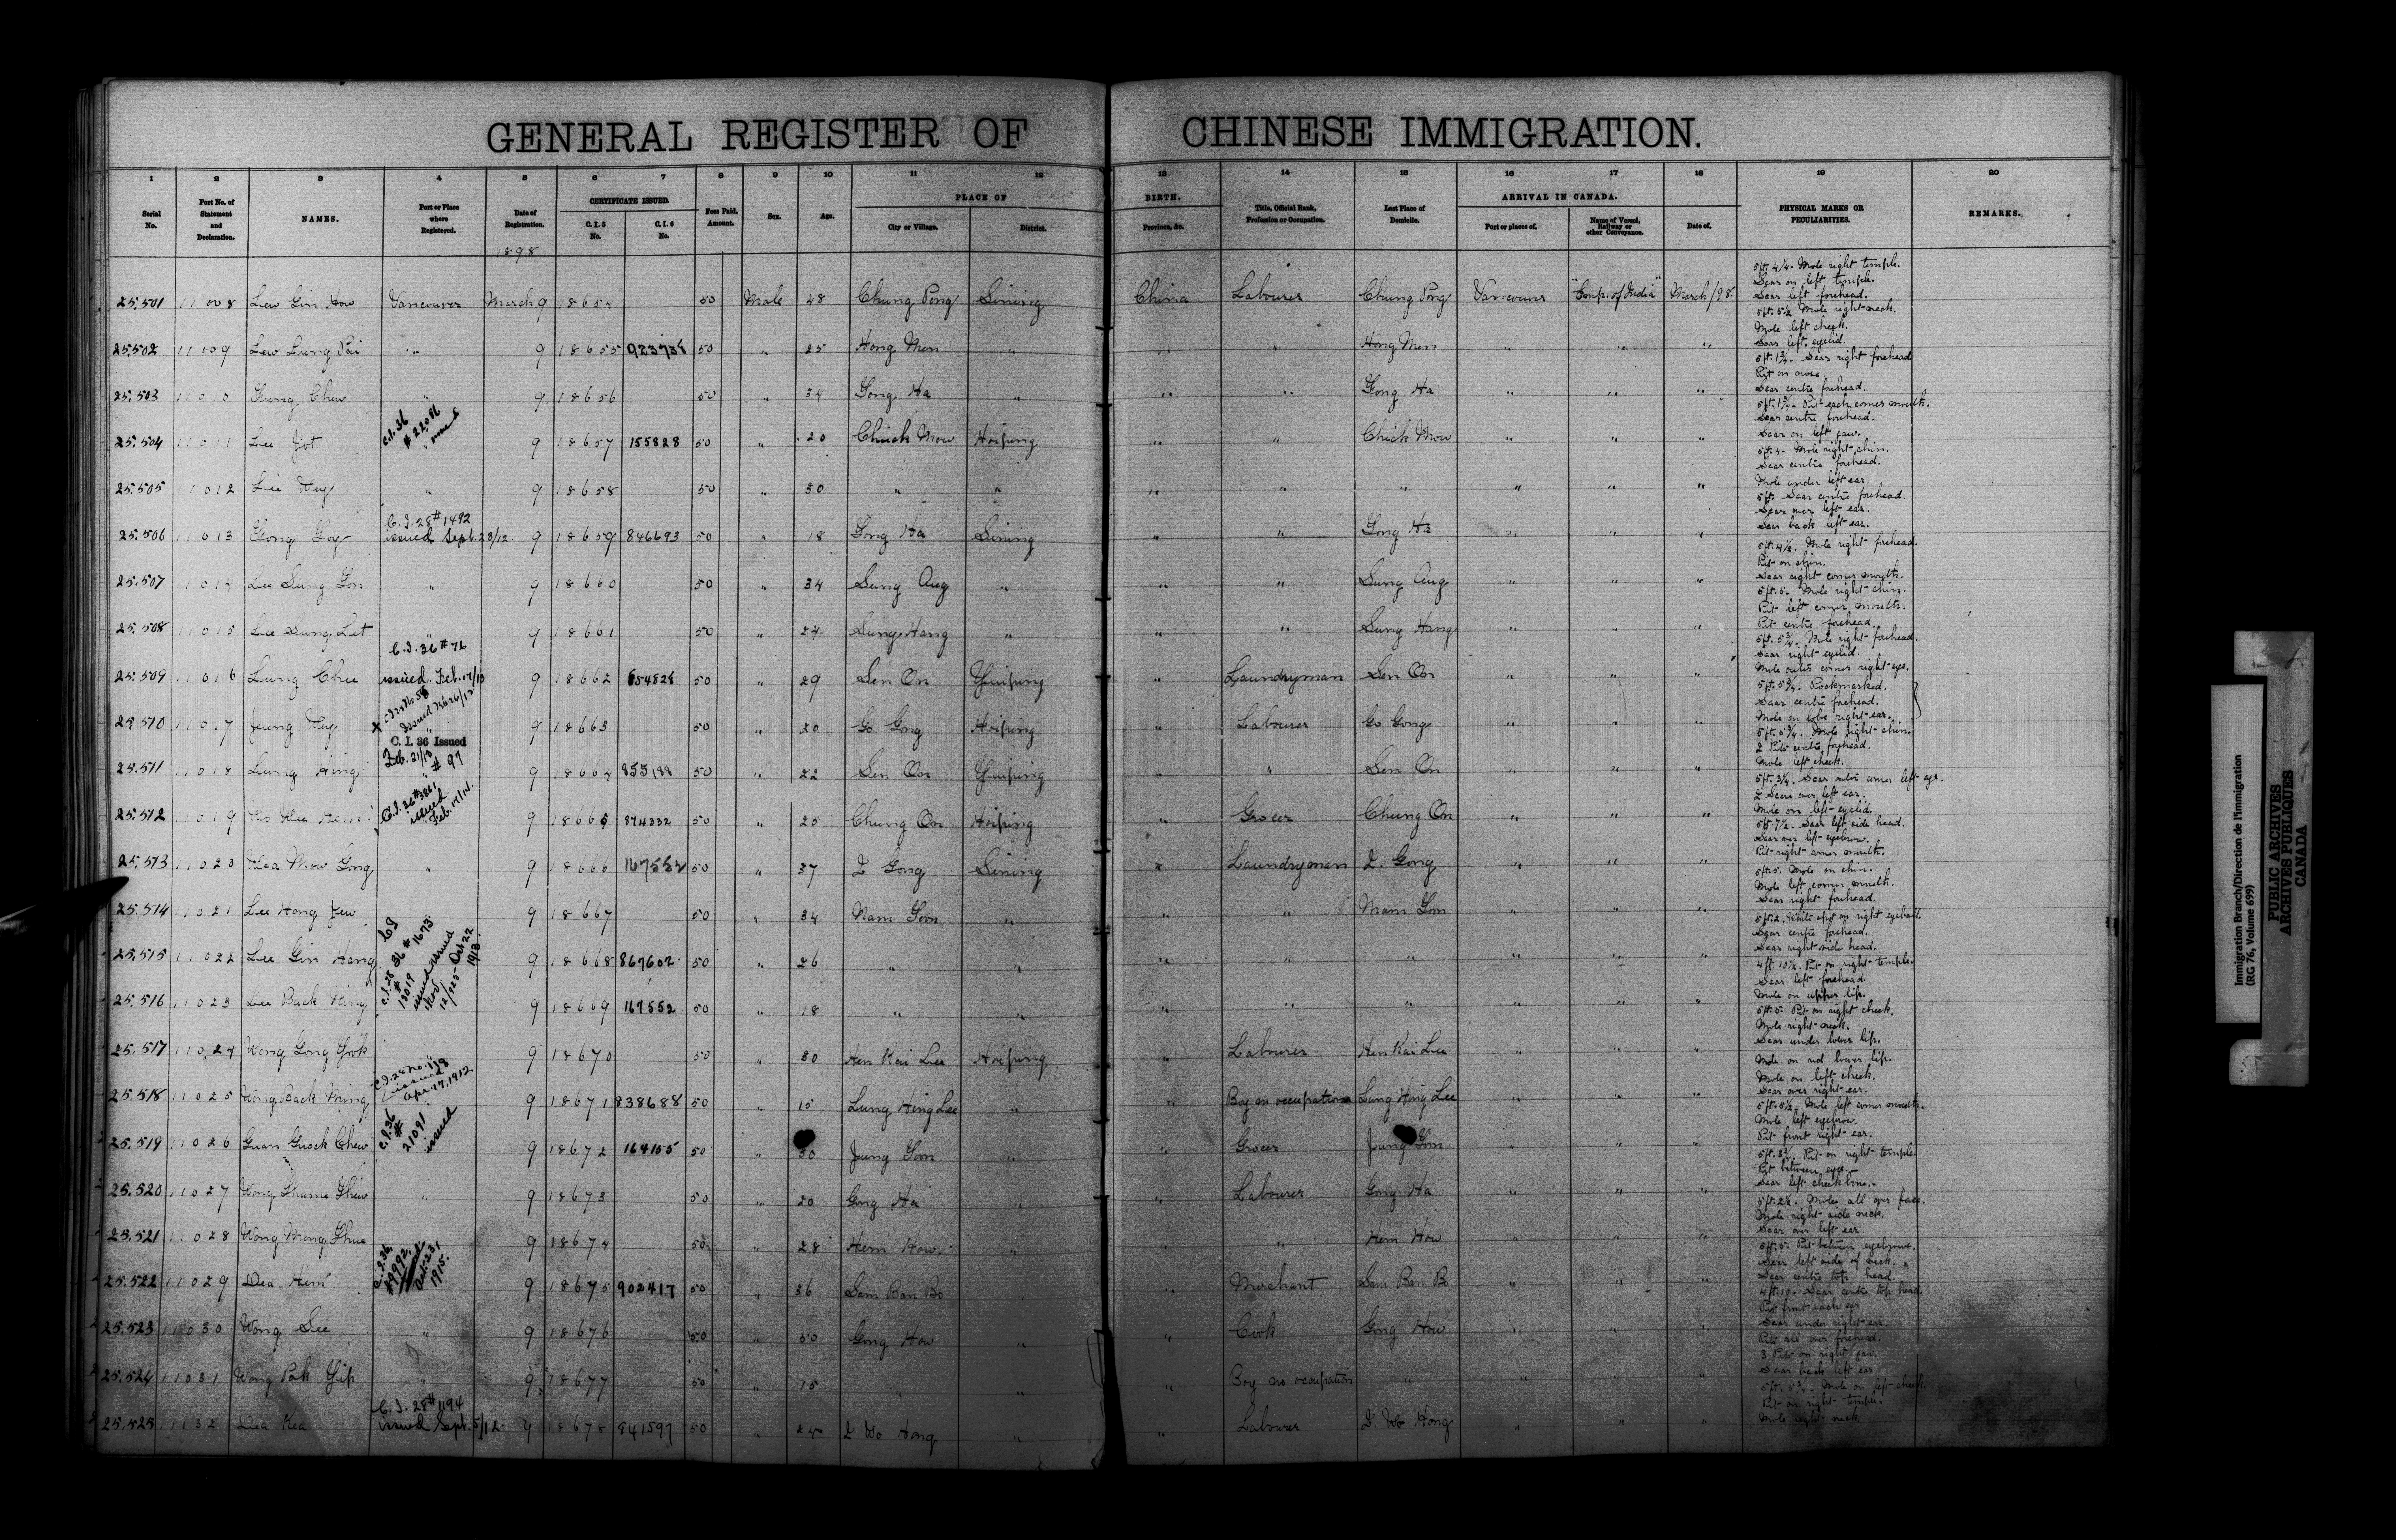 GENERAL REGISTER OF CHINESE IMMIGRATION.
1 2 3 4 5 6 7 8 9 10 11 12 13 14 15 16 17 18 19 20
Serial No. Port No. of Statement and Declaration. NAMES. Port or Place where Registered. Date of Registration. CERTIFICATE ISSUED. C.I.5 No. C.I.6 No. Fees Paid. Amount. Sex. Age. PLACE OF BIRTH. City or Village. District. Province, &c. Title, Official Rank, Profession or Occupation. Last Place of Domicile. ARRIVAL IN CANADA. Port or places of. Name of Vessel, Railway or other Conveyance. Date of. PHYSICAL MARKS OR PECULIARITIES. REMARKS.
1898
25.501 11008 Lew Gin How Vancouver March 9 18654 50 Male 28 Chung Pong Sining China Labourer Chung Pong Vancouver "Emp. of India" March /98. 5ft. 4¼. Mole right temple.
Scar on left temple.
Scar left forehead.
25.502 11009 Lew Lung Pai " 9 18655 923738 50 " 25 Hong Men " " " Hong Men " " " 5ft. 5½ Mole right neck.
Mole left cheek.
Scar left eyelid.
25.503 11010 Chew " 9 18656 50 " 34 Gong Ha " " " Gong Ha " " " 5ft. 1¾. Scar right forehead
Pit on nose.
Scar centre forehead.
25.504 11011 Lee Jot C.I.36 # 22086 issued 9 18657 155828 50 " 20 Chuck Mow Hoiping " " Chick Mow " " " Pit each corner mouth.
Scar centre forehead.
Scar on left jaw.
25.505 11012 Lee Huy " 9 18658 50 " 30 " " " " " " " " 5ft. 4. Mole right chin.
Scar centre forehead.
Mole under left ear.
25.506 11013 Gong Goy C.I.28 # 1492 issued Sept. 23/12. 9 18659 846693 50 " 18 Gong Ha Sining " " Gong Ha " " " 5ft. Scar centre forehead.
Scar over left ear.
Scar back left ear.
25.507 11014 Lee Sung Gon " 9 18660 50 " 34 Sung Aug " " " Sung Aug " " " 5ft. 4½. Mole right forehead.
Pit on chin.
Scar right corner mouth.
25.508 11015 Lee Sung Let " 9 18661 50 " 24 Sung Hang " " " Sung Hang " " " 5ft. 5. Mole right chin.
Pit left corner mouth.
Pit centre forehead.
25.509 11016 Lung Chee C.I.36 # 76 issued Feb. 17/13 9 18662 654828 50 " 29 Sen On Yinping " Laundryman Sen On " " " 5ft. 5¾. Mole right forehead.
Scar right eyelid.
Mole outer corner right eye.
25.510 11017 Jung Huy 9 18663 50 " 20 Go Gong Hoiping " Labourer Go Gong " " " 5ft. 5¾. Pockmarked.
Scar centre forehead.
Mole on lobe right ear.
25.511 11018 Lung Hing C.I.36 Issued Feb. 21/13 # 97 9 18664 855188 50 " 22 Sen On Yinping " " Sen On " " " Mole right chin.
2 Pits centre forehead.
Mole left cheek.
25.512 11019 C.I.36 # 3861 issued Feb. 17/14. 9 18665 874332 50 " 25 Chung On Hoiping " Grocer Chung On " " " 5ft. 3¼. Scar outer corner left eye.
2 Scars over left ear.
Mole on left eyelid.
25.513 11020 Mow Gong " 9 18666 167552 50 " 37 I Gong Sining " Laundryman I. Gong " " " 5ft 7½. Scar left side head.
Scar over left eyebrow.
Pit right corner mouth.
25.514 11021 Lee Hong Jew 9 18667 50 " 34 Nam Goon " " " Nam Gon " " " 5ft. 5. Mole on chin.
Mole left corner mouth.
Scar right forehead.
25.515 11022 Lee Gin Hang C.I.36 # 1673 issued Oct 22 1913 9 18668 867602 50 " 26 " " " " " " " " 5ft. 2. White spot on right eyeball.
Scar centre forehead.
Scar right side head.
25.516 11023 Lee Buck Hing 9 18669 167552 50 " 18 " " " " " " " " 4ft. 10½. Pit on right temple.
Scar left forehead.
Mole on upper lip.
25.517 11024 Wong Gong Yook " 9 18670 50 " 30 Hen Kai Lee Hoiping " Labourer Hen Kai Lee " " " 5ft. 5. Pit on right cheek.
Mole right neck.
Scar under lower lip.
25.518 11025 Wong Back Ming issued Apr. 17, 1912 9 18671 838688 50 " 15 Lung Hing Lee " " Boy no occupation Lung Hing Lee " " " Mole on red lower lip.
Mole on left cheek.
Scar over right ear.
25.519 11026 Guan Guock Chew C.I.36 # 21091 issued 9 18672 164105 50 " 30 Jung Goon " " Grocer Jung Gon " " " 5ft. 5½. Mole left corner mouth.
Mole left eyebrow.
Pit front right ear.
25.520 11027 Wong " 9 18673 50 " 20 Gong Ha " " Labourer Gong Ha " " " Pit on right temple.
Pit between eyes.
Scar left cheek bone.
25.521 11028 Wong Mong 9 18674 50 " 28 Hem How " " " Hem How " " " 5ft. 2½. Moles all over face.
Mole right side neck.
Scar over left ear.
25.522 11029 Dea Hem C.I.36 1915. 9 18675 902417 50 " 36 Sam Ban Bo " " Merchant Sam Ban Bo " " " 5ft. 5. Pit between eyebrows.
Scar left side of neck.
Scar centre top head.
25.523 11030 Wong See " 9 18676 50 " 50 Gong How " " Cook Gong How " " " 4ft. 10. Scar centre top head.
Pit front each ear
Scar under right ear
25.524 11031 Wong Pak Yip " 9 18677 50 " 15 " " " Boy no occupation " " " " Pits all over forehead.
3 Pits on right jaw.
Scar back left ear
25.525 11032 Dea Kea C.I.28 # 1194 issued Sept. 5/12 9 18678 841597 50 " I Wo Hong " " Labourer I. Wo Hong " " " Mole on left cheek
Pit on right temple.
Mole right neck
Immigration Branch/Direction de l'immigration
(RG 76, Volume 699)
PUBLIC ARCHIVES
ARCHIVES PUBLIQUES
CANADA